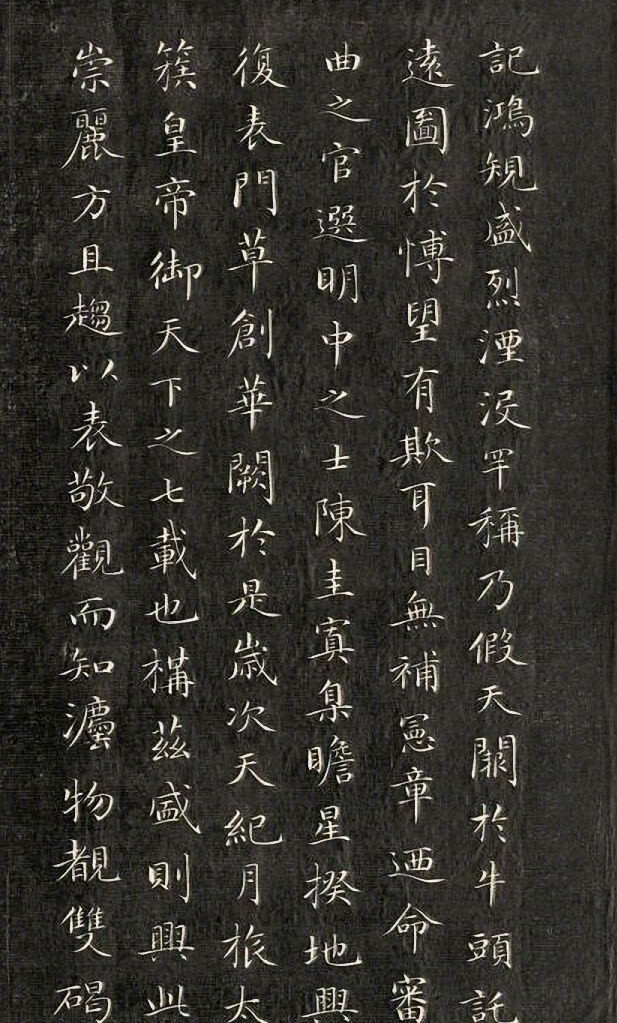 記鴻䂓盛烈湮没罕稱乃假天闕於牛頭託
遠圖於愽望有欺耳目無補憲章廼命審
曲之官選明中之士陳圭寘臬瞻星揆地興
復表門草創華闕於是歲次天紀月旅太
簇皇帝御天下之七載也構茲盛則興此
崇麗方且趨以表敬觀而知灋物覩雙碣